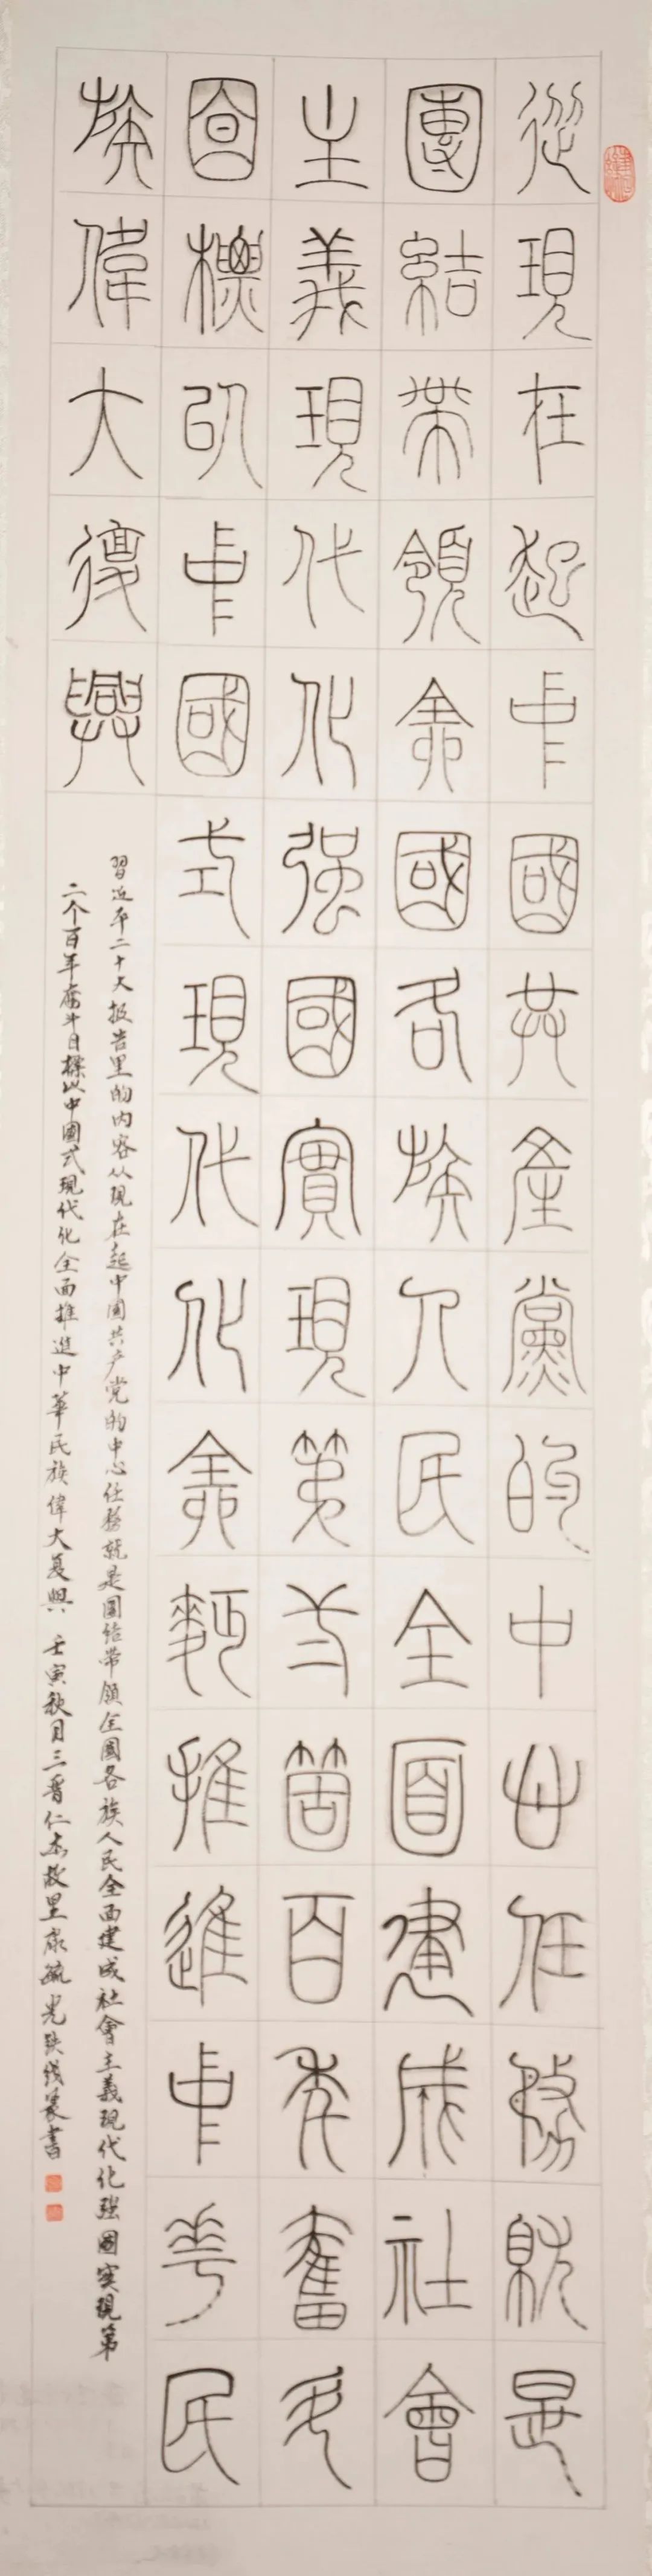 從現在起中國共產黨的中心任務就是
團結帶領全國各族人民全面建成社會
主義現代化强國實現第二個百年奮斗
目標以中國式現代化全面推進中華民
族偉大復興
習近平二十大报告里的内容从現在起中國共产党的中心任務就是團结带領全國各族人民全面建成社會主義現代化强國实現第
二个百年奮斗目標以中國式現代化全面推進中華民族偉大复興 壬寅秋月三晋仁杰故里康毓光铁线篆書